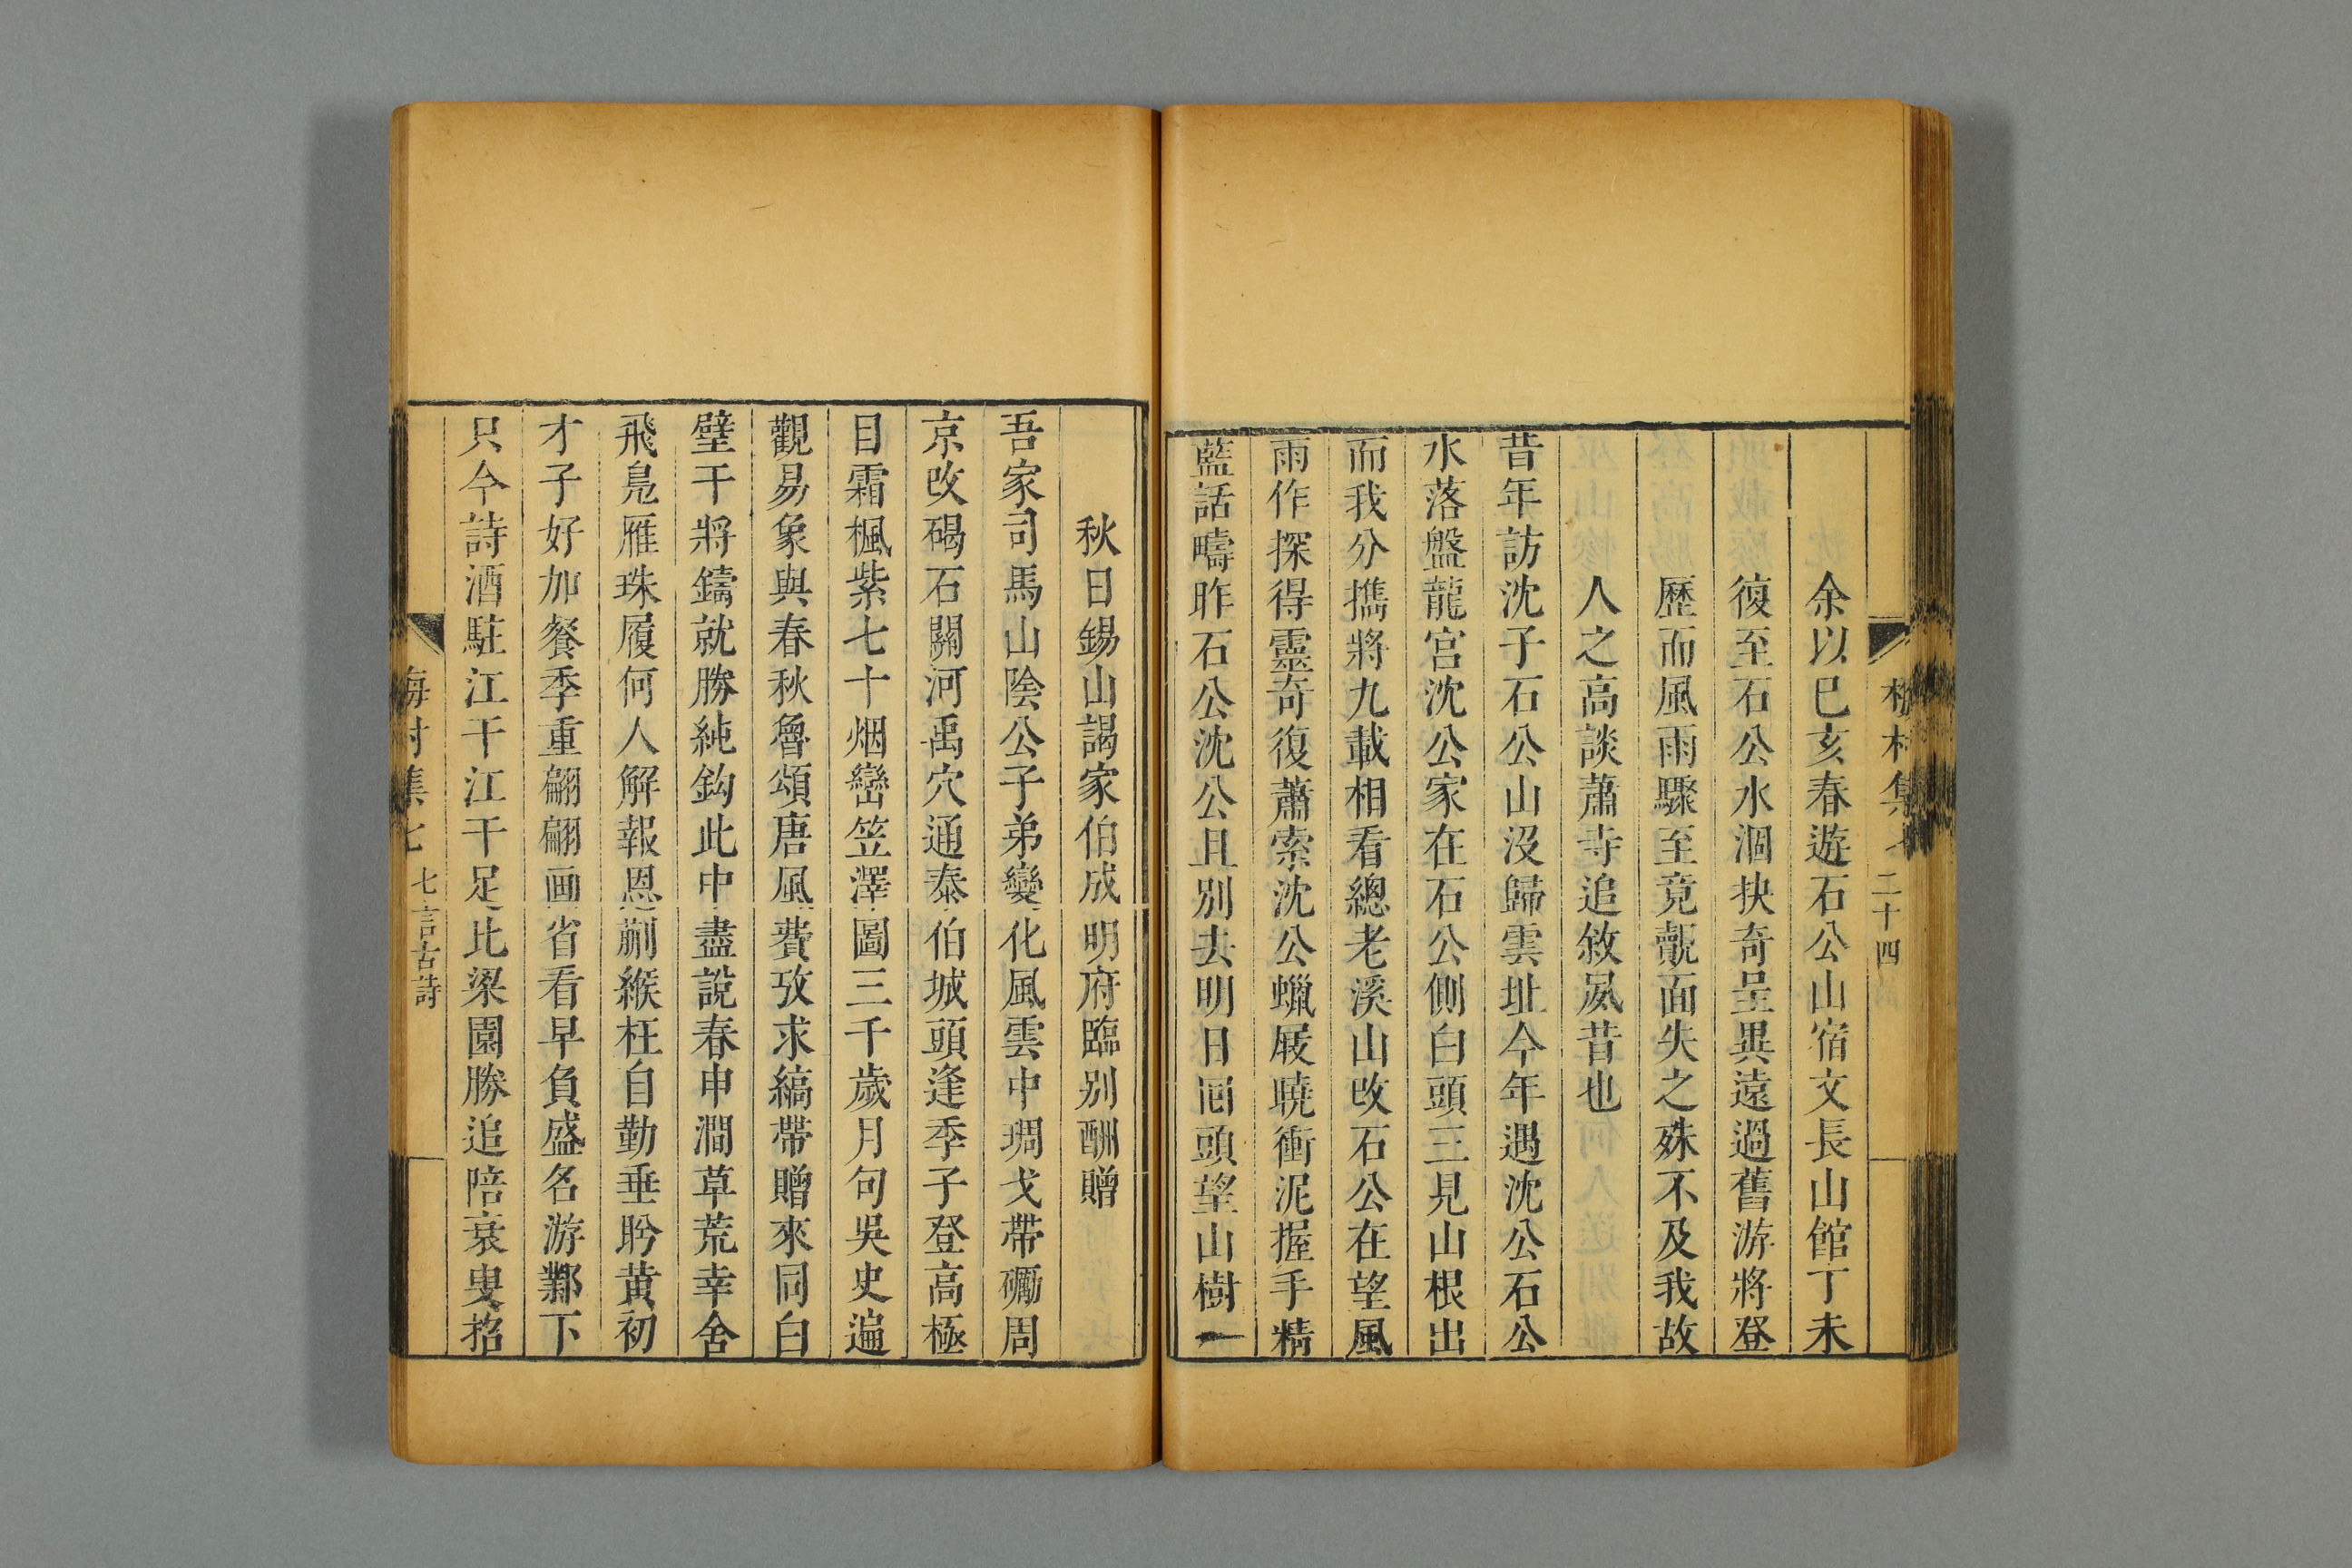 梅村集 二十四
余以巳亥春遊石公山宿文長山館丁未
復至石公水涸抉奇呈異遠過舊游將登
歷而風雨驟至竟覿面失之殊不及我故
人之高談蕭寺追敘夙昔也
昔年訪沈子石公山沒歸雲址今年遇沈公石公
水落盤龍宮沈公家在石公側白頭三見山根出
而我分擕將九載相看總老溪山改石公在望風
雨作探得靈奇復蕭索沈公蠟屐曉衝泥握手精
藍話疇昨石公沈公且別去明日囘頭望山樹
秋日錫山謁家伯成明府臨別酬贈
吾家司馬山陰公子弟變化風雲中琱戈帶礪周
京改碣石關河禹穴通泰伯城頭逢季子登高極
目霜楓紫七十烟巒笠澤圖三千歲月句吳史遍
觀易象與春秋魯頌唐風費攷求縞帶贈來同白
璧干將鑄就勝純鈎此中盡說春申澗草荒幸舍
飛鳧雁珠履何人解報恩蒯緱枉自勤垂盻黃初
才子好加餐季重翩翩画省看早負盛名游鄴下
只今詩酒駐江干江干足比梁園勝追陪衰叟招
梅村集七 七言古詩